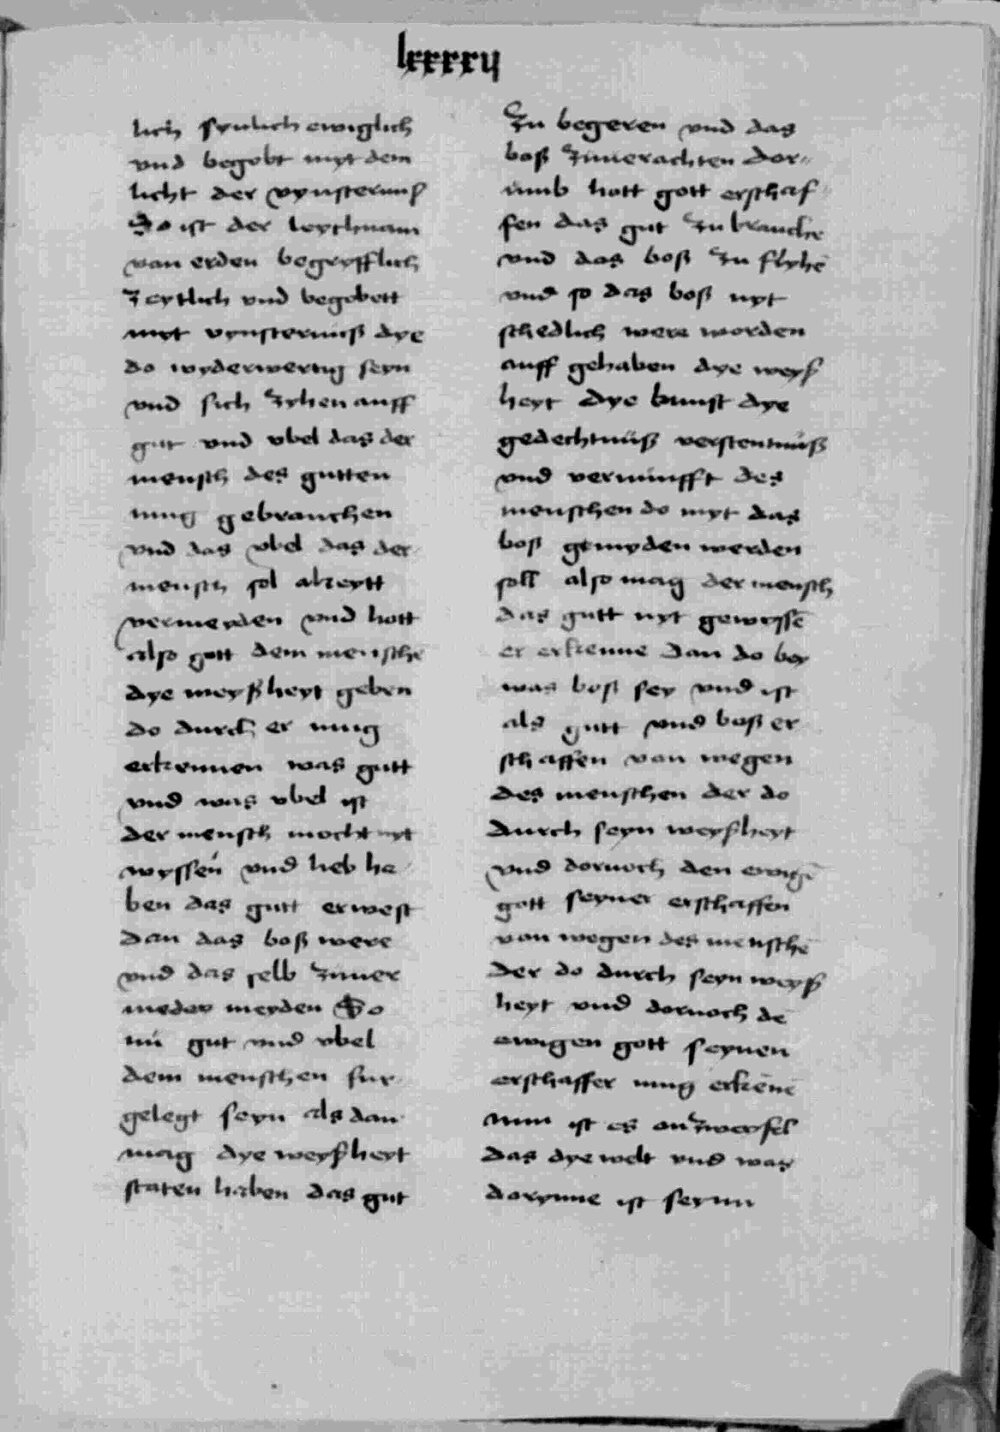 lxxxxij
lich synlich ewiglich
vnd begobt myt dem
licht der vynsternuß
So ist der leychnam
von erden begryfflich
zeytlich vnd begobett
myt vynsternuß dye
do wyderwertig seyn
vnd sich zyhen auff
gut vnd vbel das der
mensch des gutten
mug gebrauchen
vnd das vbel das der
mensch sol alzeytt
vermeyden vnd hott
also gott dem mensche
dye weyßheyt geben
do durch er mug
erkennen was gutt
vnd was vbel ist
der mensch mocht nyt
wyssen vnd lieb ha
ben das gutt er west
dan das boß were
vnd das selb zuuer
meyden So
nu gut vnd vbel
dem menschen fur
gelegt seyn als dan
mag dye weyßheyt
staten haben das gut
zu begeren vnd das
boß zuuerachten dor
umb hott gott erschaf
fen das gut zu brauche
vnd das boß zu flyhē
vnd so das boß nyt
schedlich were worden
auff gehaben dye weyß
heyt dye kunst dye
gedechtnuß verstentnuß
vnd vernunfft des
menschen do myt das
boß gemyden werden
soll also mag der mensch
das gutt nyt gewyssē
er erkenne dan do bey
was boß sey vnd ist
als gutt vnd boß er
schaffen von wegen
des menschen der do
durch seyn weyßheyt
vnd dornoch den ewigē
gott seyner erschaffen
von wegen des menschē
der do durch seyn weyß
heyt vnd dornoch dē
ewigen gott seynen
erschaffer mug erkēnē
nun ist es on zweyfel
das dye welt vnd was
dorynne ist seynn